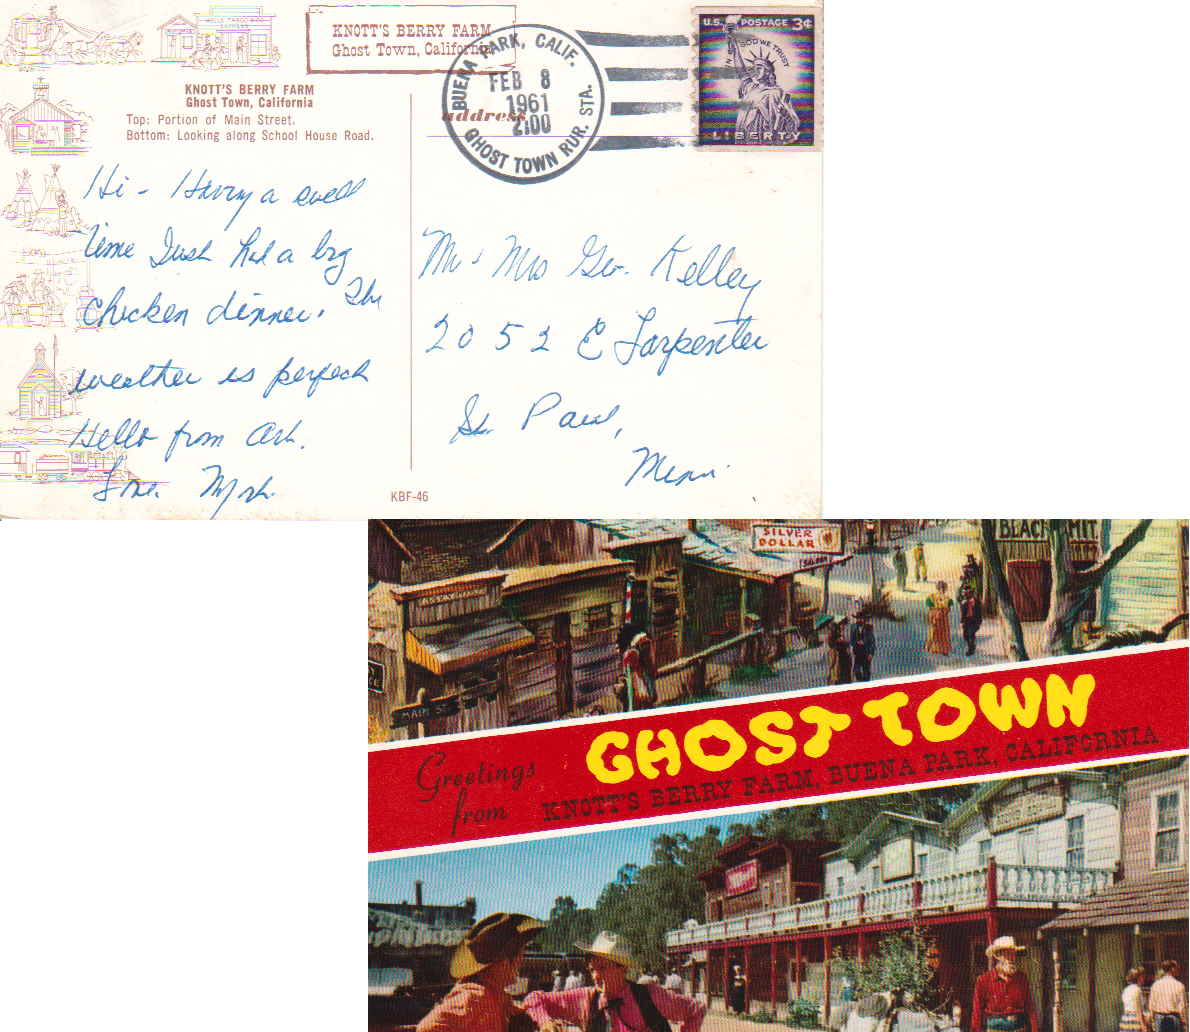 WELLS FARGO & CO
EXPRESS
KNOTT'S BERRY FARM
Ghost Town, California
KNOTT'S BERRY FARM
Ghost Town, California
Top: Portion of Main Street.
Bottom: Looking along School House Road.
BUENA PARK, CALIF.
FEB 8
1961
2:00
GHOST TOWN RUR. STA.
U.S. POSTAGE 3¢
IN GOD WE TRUST
LIBERTY
address
Hi - Having a swell
time Just had a big
chicken dinner. The
weather is perfect
Hello from Art.
Love
Mr & Mrs Geo. Kelley
2052 E Larpenter
St. Paul,
Minn.
KBF-46
SILVER
DOLLAR
SALOON
BLACKSMIT
MAIN ST
Greetings
from
GHOST TOWN
KNOTT'S BERRY FARM, BUENA PARK, CALIFORNIA